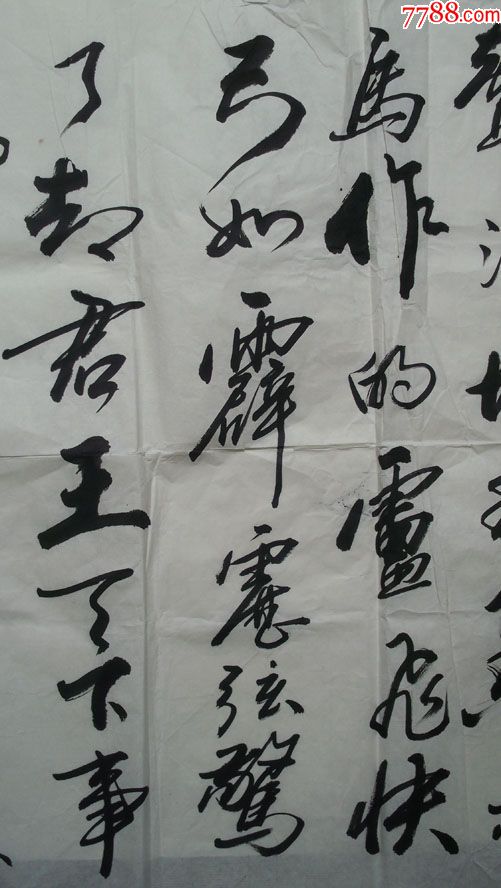 馬作的盧飛快
弓如霹靂弦驚
了却君王天下事
7788.com